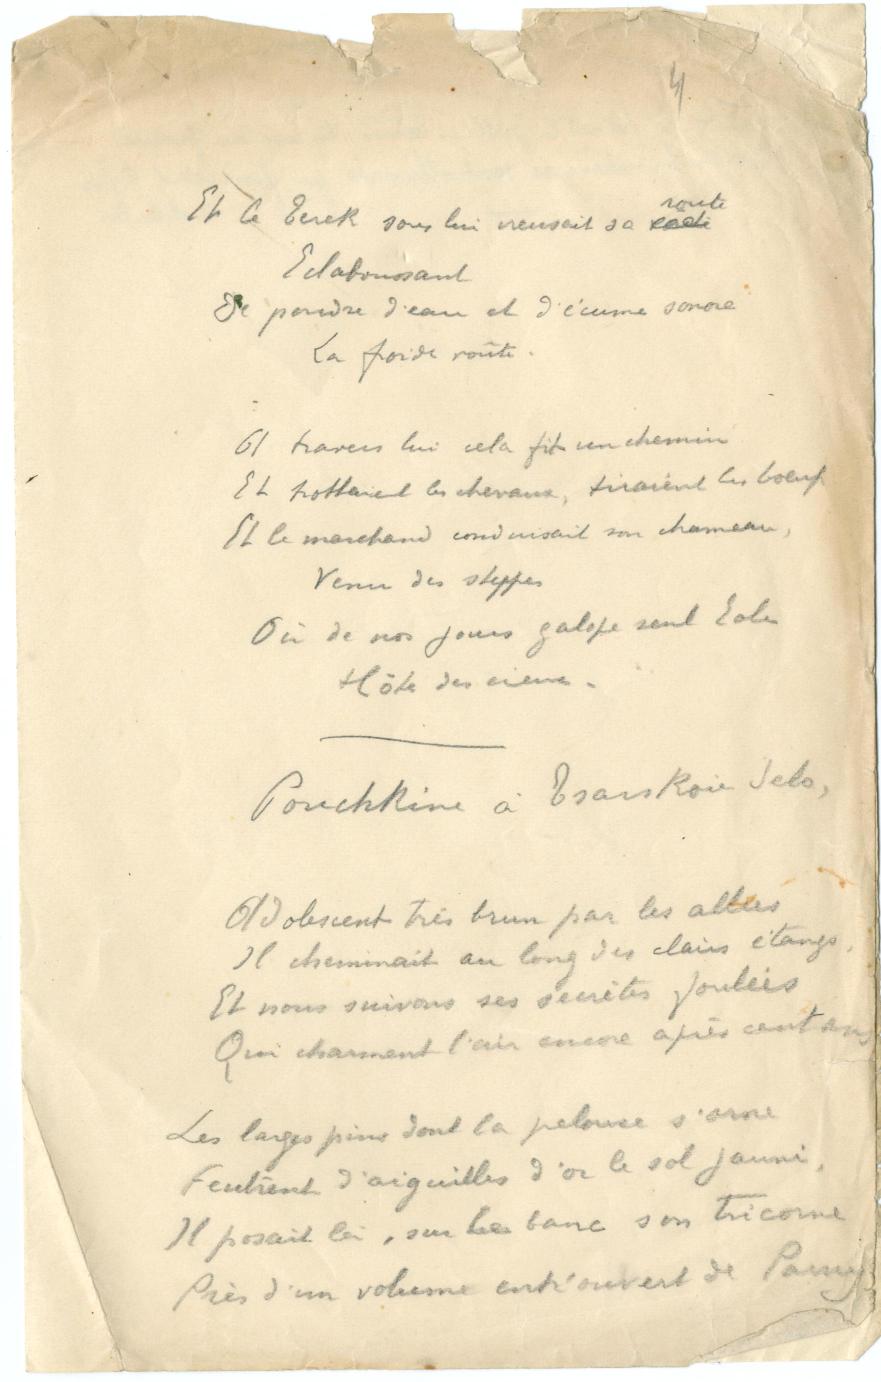 4
Et le Terek sous lui creusait sa route
Eclaboussant
De poudre d'eau et d'écume sonore
La froide voûte.
A travers lui cela fit un chemin
Et trottaient les chevaux, tiraient les boeufs
Et le marchand conduisait son chameau,
Venu des steppes
Où de nos jours galope seul Eole
Hôte des cieux.
Pouchkine à Tsarskoie Selo,
Adolescent très brun par les allées
Il cheminait au long des clairs étangs,
Et nous suivons ses secrètes foulées
Qui charment l'air encore après cent ans
Les larges pins dont la pelouse s'orne
Feutrent d'aiguilles d'or le sol jauni,
Il posait là, sur le banc son tricorne
Près d'un volume entr'ouvert de Parny